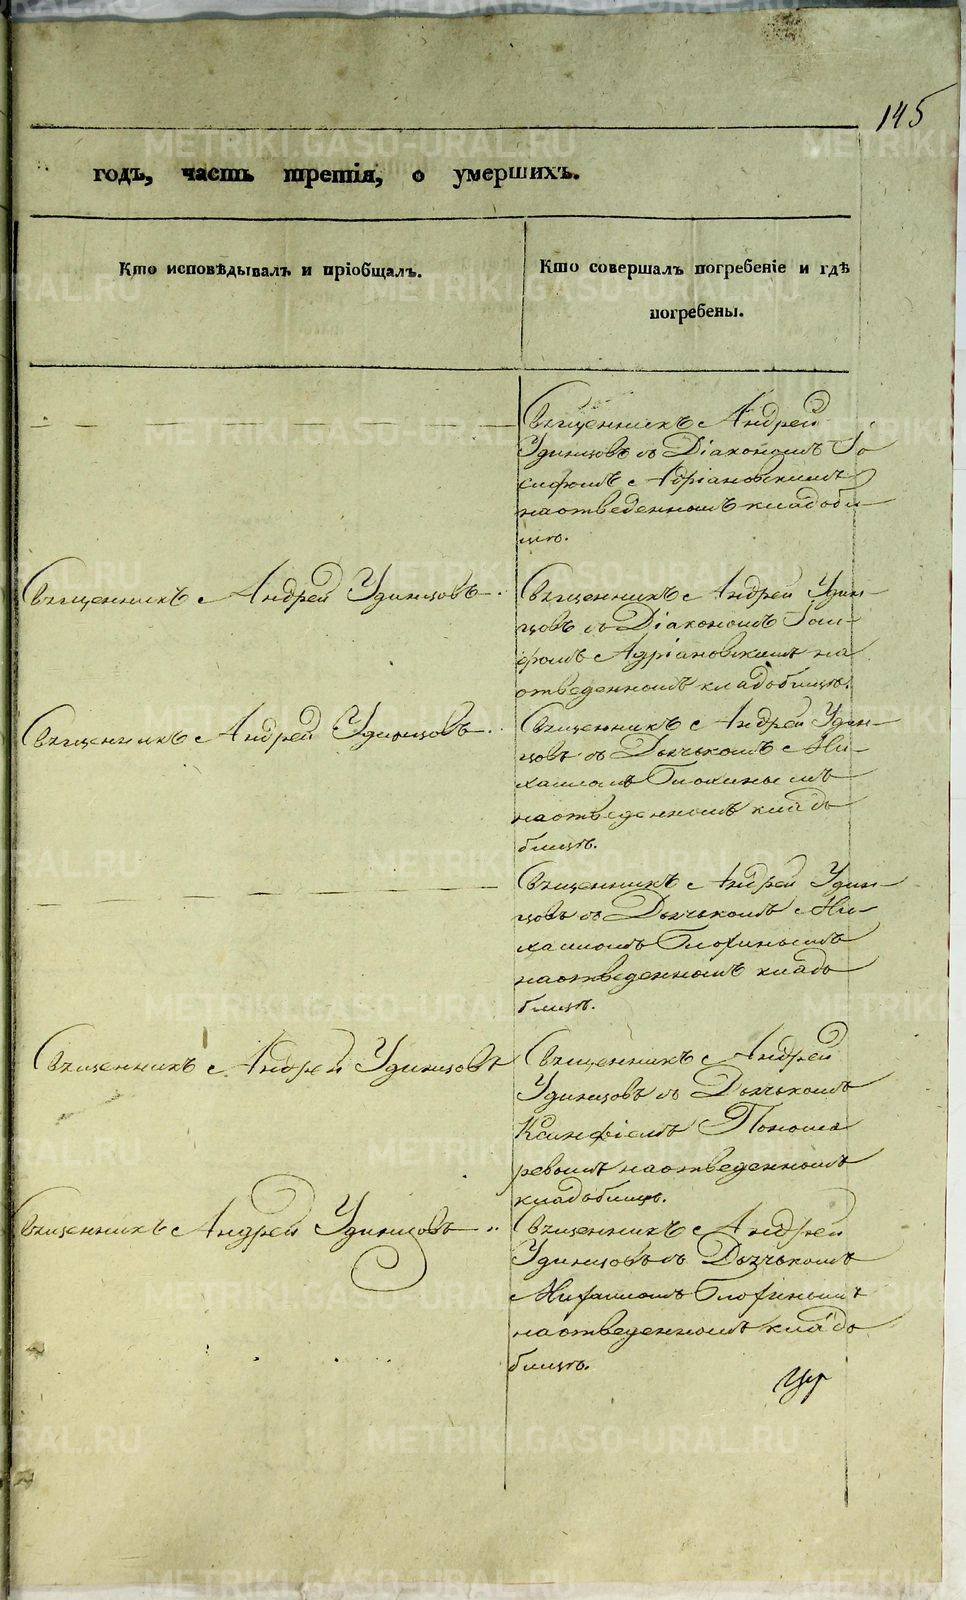 145
годъ, часть третія, о умершихъ.
Кто исповѣдывалъ и пріобщалъ.
Кто совершалъ погребеніе и гдѣ
погребены.
Священникъ Андрей
Удинцовъ съ Діакономъ Іо
сифомъ Адріановскимъ
на отведенномъ кладби-
щѣ.
Священникъ Андрей Удинцовъ
Священникъ Андрей Удин-
цовъ съ Діакономъ Іоси-
фомъ Адріановскимъ на
отведенномъ кладбищѣ.
Священникъ Андрей Удинцовъ
Священникъ Андрей Удин-
цовъ съ Дьячькомъ Ми-
хаиломъ Блохинымъ
на отведенномъ клад
бищѣ.
Священникъ Андрей Удин-
цовъ съ Дьячькомъ Ми-
хаиломъ Блохинымъ
на отведенномъ клад
бищѣ.
Священникъ Андрей Удинцовъ
Священникъ Андрей
Удинцовъ съ Дьячькомъ
Понома
ревымъ на отведенномъ
кладбищѣ.
Священникъ Андрей Удинцовъ
Священникъ Андрей
Удинцовъ съ Дьячькомъ
Михаиломъ Блохинымъ
на отведенномъ клад
бищѣ.
METRIKI.GASO-URAL.RU